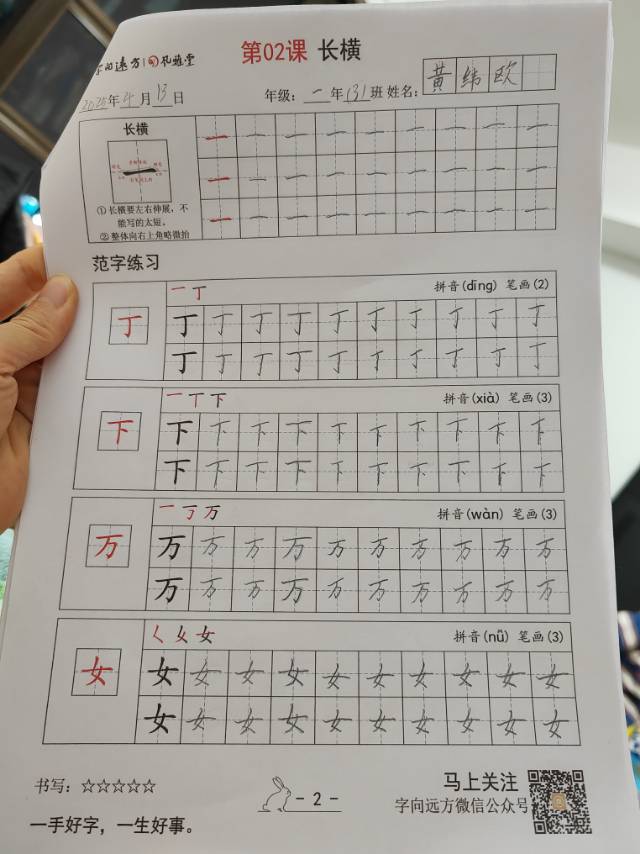 字向远方
第02课 长横
2025年4月13日 年级：一年131班 姓名：黄纬欧
长横
①长横要左右伸展，不
能写的太短。
②整体向右上角略微抬
一 一 一 一 一 一 一 一 一
一 一 一 一 一 一 一 一 一
一 一 一 一 一 一 一 一 一
范字练习
一丁 拼音(dīng) 笔画(2)
丁 丁 丁 丁 丁 丁 丁 丁 丁 丁 丁
丁 丁 丁 丁 丁 丁 丁 丁 丁 丁
一丅下 拼音(xià) 笔画(3)
下 下 下 下 下 下 下 下 下 下 下
下 下 下 下 下 下 下 下 下 下
一丁万 拼音(wàn) 笔画(3)
万 万 万 万 万 万 万 万 万 万 万
万 万 万 万 万 万 万 万 万 万
ㄑ 女 女 拼音(nǚ) 笔画(3)
女 女 女 女 女 女 女 女 女 女 女
女 女 女 女 女 女 女 女 女 女
书写：☆☆☆☆☆
- 2 -
马上关注
字向远方微信公众号
一手好字，一生好事。